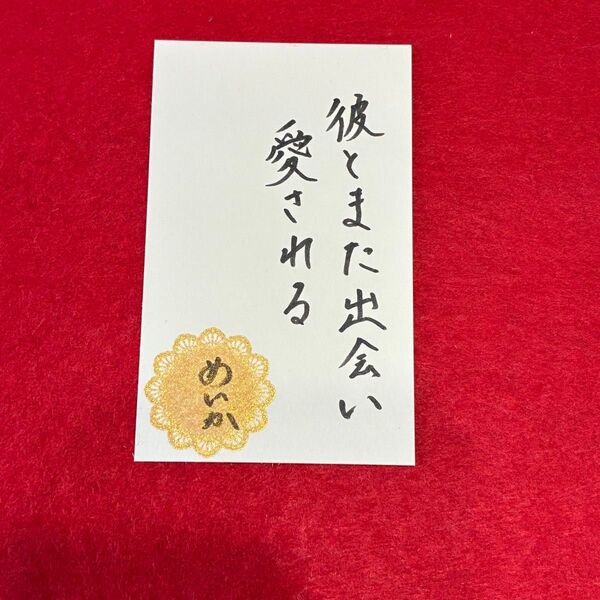 彼とまた出会い
愛される
めいか